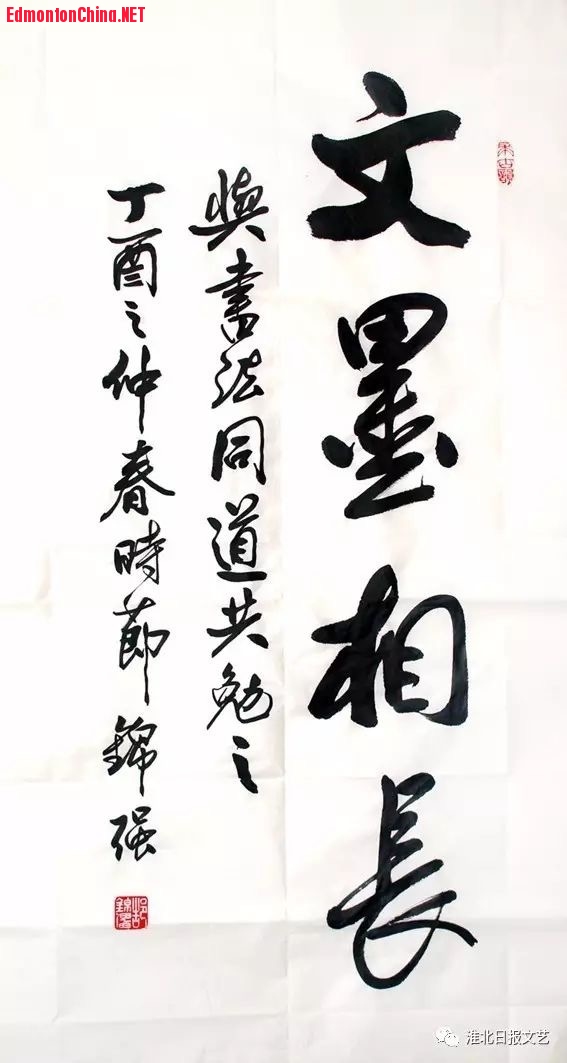 EdmontonChina.NET
文墨相長
與書法同道共勉之
丁酉之仲春時節錦强
淮北日报文艺